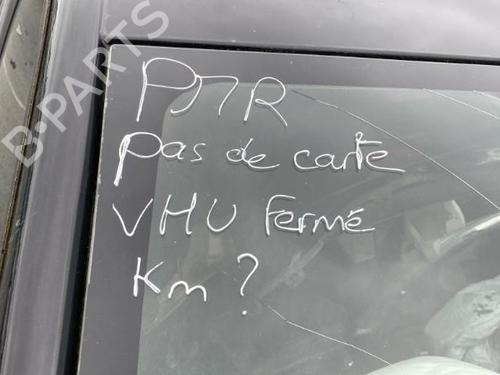 B-PARTS
PJR
pas de carte
VHU Fermé
Km ?